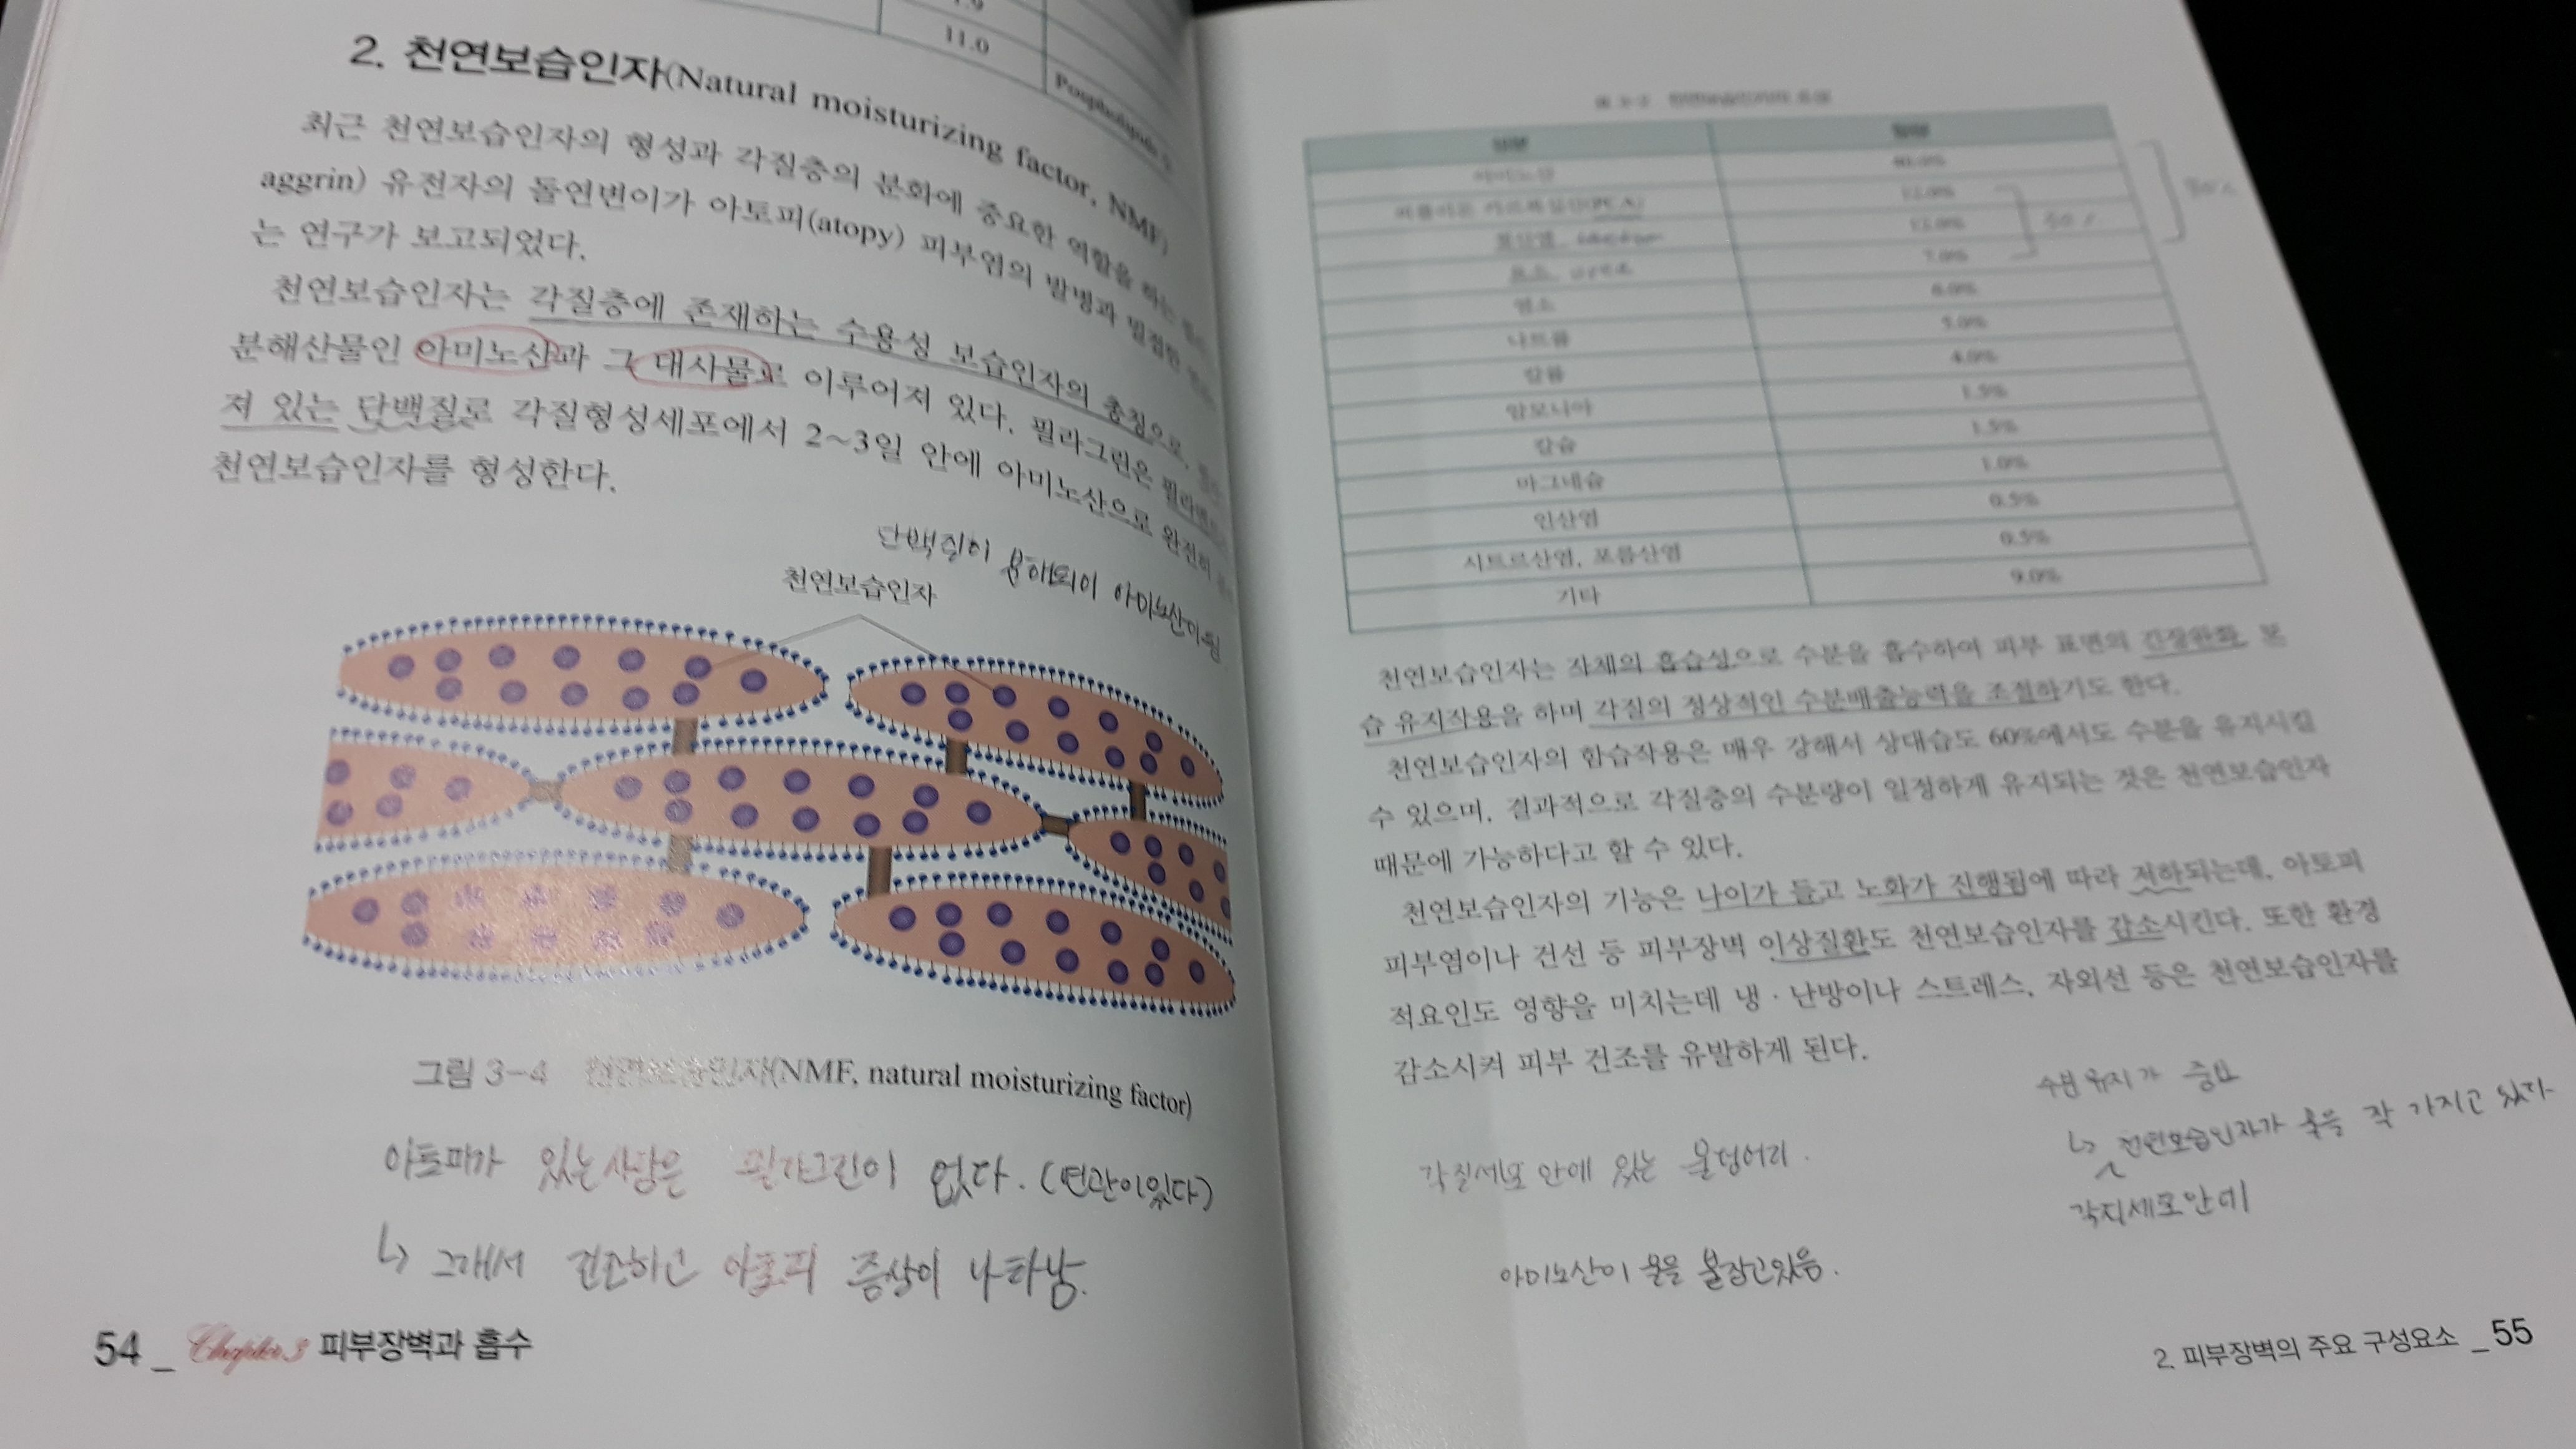 11.0
2. 천연보습인자(Natural moisturizing factor, NMF)
최근 천연보습인자의 형성과 각질층의 분화에 중요한 역할을 하는
aggrin) 유전자의 돌연변이가 아토피(atopy) 피부염의 발병과 밀접한
는 연구가 보고되었다.
천연보습인자는 각질층에 존재하는 수용성 보습인자의 총칭으로,
분해산물인 아미노산과 그 대사물로 이루어져 있다. 필라그린은
져 있는 단백질로 각질형성세포에서 2~3일 안에 아미노산으로 완전히
천연보습인자를 형성한다.
단백질이 분해되어 아미노산이 됨
천연보습인자
그림 3-4 천연보습인자(NMF, natural moisturizing factor)
아토피가 있는 사람은 필라그린이 없다. (연관이있다)
↳ 그래서 건조하고 아토피 증상이 나타남.
54 _ Chapter 3 피부장벽과 흡수
성분 함량
아미노산 40.0%
피롤리돈 카르복실산(PCA) 12.0%
젖산염 12.0%
요소 urea 7.0%
염소 6.0%
나트륨 5.0%
칼륨 4.0%
암모니아 1.5%
칼슘 1.5%
마그네슘 1.0%
인산염 0.5%
시트르산염, 포름산염 0.5%
기타 9.0%
천연보습인자는 자체의 흡습성으로 수분을 흡수하여 피부 표면의 긴장완화, 보
습 유지작용을 하며 각질의 정상적인 수분배출능력을 조절하기도 한다.
천연보습인자의 함습작용은 매우 강해서 상대습도 60%에서도 수분을 유지시킬
수 있으며, 결과적으로 각질층의 수분량이 일정하게 유지되는 것은 천연보습인자
때문에 가능하다고 할 수 있다.
천연보습인자의 기능은 나이가 들고 노화가 진행됨에 따라 저하되는데, 아토피
피부염이나 건선 등 피부장벽 이상질환도 천연보습인자를 감소시킨다. 또한 환경
적요인도 영향을 미치는데 냉·난방이나 스트레스, 자외선 등은 천연보습인자를
감소시켜 피부 건조를 유발하게 된다.
수분유지가 중요
↳ 천연보습인자가 꽉 가지고 있다
각질세포안에
각질세포 안에 있는 물덩어리.
아미노산이 물을 붙잡고있음.
2. 피부장벽의 주요 구성요소 _ 55